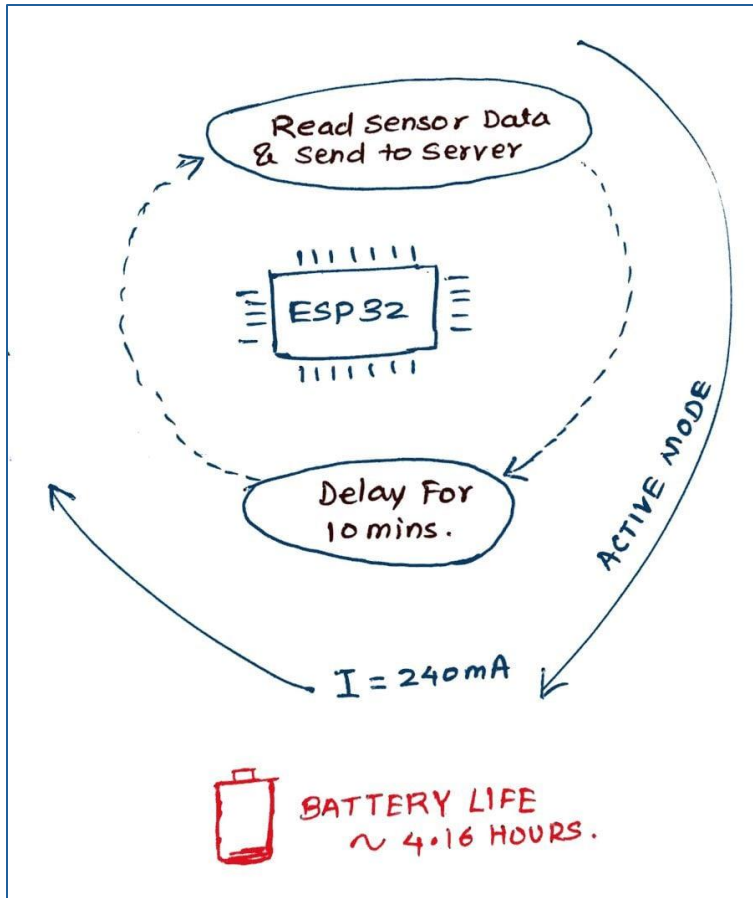 Read Sensor Data
& Send to Server
ESP32
Delay For
10 mins.
ACTIVE MODE
I = 240mA
BATTERY LIFE
~ 4.16 HOURS.